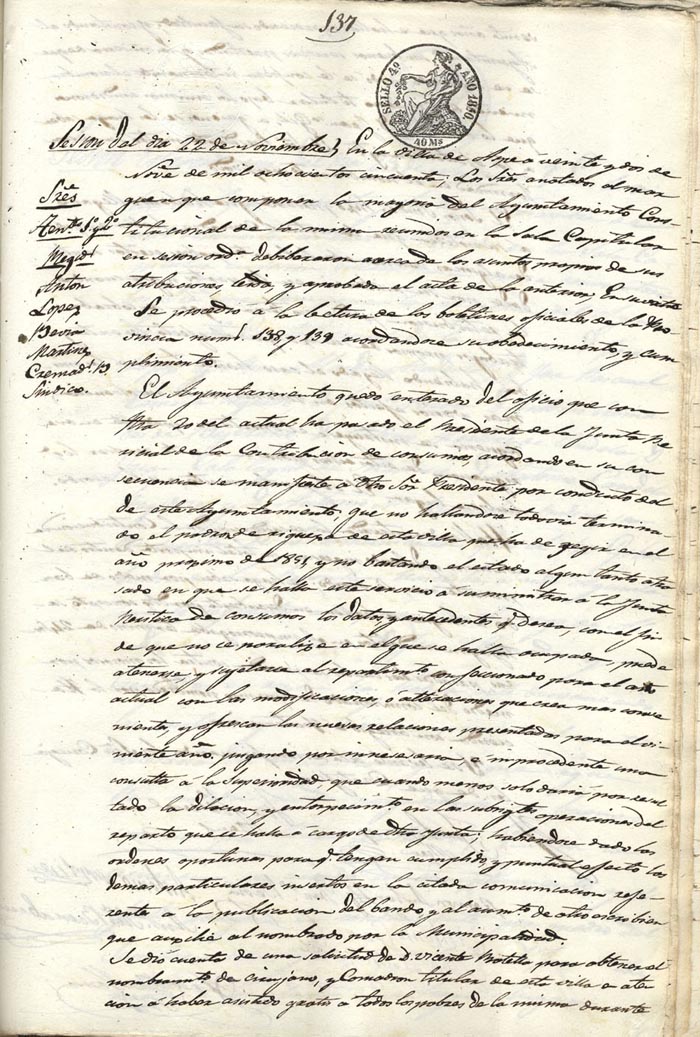 137
SELLO 4º AÑO 1850.
40 Ms
Sesion del dia 22 de Noviembre} En la Villa de Aspe a veinte y dos de
Nove de mil ochocientos cincuenta; Los Sres anotados al mar
gen que componen la mayoria del Ayuntamiento Cons
titucional de la misma reunidos en la Sala Capitular
en sesion orda deliberaron acerca de los asuntos propios de sus
atribuciones, leida, y aprobada el acta de la anterior, En su virtud
Se procedió a la lectura de los boletines oficiales de la Pro
vincia nums 138 y 139 acordandose su obedecimiento, y cum
plimiento.
Sres
Tente 1º y 2º
Regids
Anton
Lopez
Bevia
Martinez
Cremads
Sindico.
El Ayuntamiento quedo enterado del oficio que con
fha 20 del actual ha pasado el Presidente de la Junta Pe
ricial de la Contribucion de consumos, acordando en su con
secuencia se manifieste a dicho Sor Presidente por conducto del
de este Ayuntamiento, que no hallandose todavia termina
do el padron de riqueza de esta villa que ha de regir en el
año proximo de 1851, y no bastando el estado algun tanto atra
sado en que se halla este servicio a suministrar á la Junta
de consumos los datos, y antecedentes q. desea, con el fin
de que no se paralize en el que se halla ocupada, puede
atenerse, y sujetarse al repartimto confeccionado para el año
actual con las modificaciones, ó alteraciones que crea mas conve
nientes, y ofrezcan las nuevas relaciones presentadas para el vi
niente año, juzgando por innecesaria, e improcedente una
consulta a la Superioridad, que cuando menos solo daria por resul
tado la dilacion, y entorpecimto en las subsigtes operaciones del
reparto que se halla a cargo de dha Junta; habiendose dado las
ordenes oportunas para q. tengan cumplido, y puntual efecto los
demas particulares insertos en la citada comunicacion refe
rente a la publicacion del bando, y al aumto de otro escribien
te que auxilie al nombrado por la Municipalidad.
Se dió cuenta de una solicitud de D. Vicente Botella para obtener el
nombramto de cirujano, y Comadron titular de esta villa en aten
cion á haber asistido gratis a todos los pobres de la misma durante